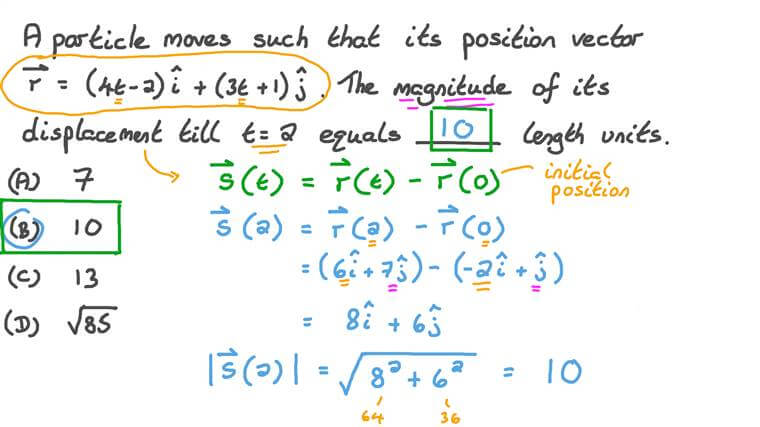 A particle moves such that its position vector
r⃗ = (4t-2)î + (3t+1)ĵ. The magnitude of its
displacement till t=2 equals 10 length units.
(A) 7
s⃗(t) = r⃗(t) - r⃗(0)
initial
position
(B) 10
s⃗(2) = r⃗(2) - r⃗(0)
= (6î+7ĵ) - (-2î+ĵ)
(C) 13
= 8î + 6ĵ
(D) √85
|s⃗(2)| = √8²+6² = 10
64 36